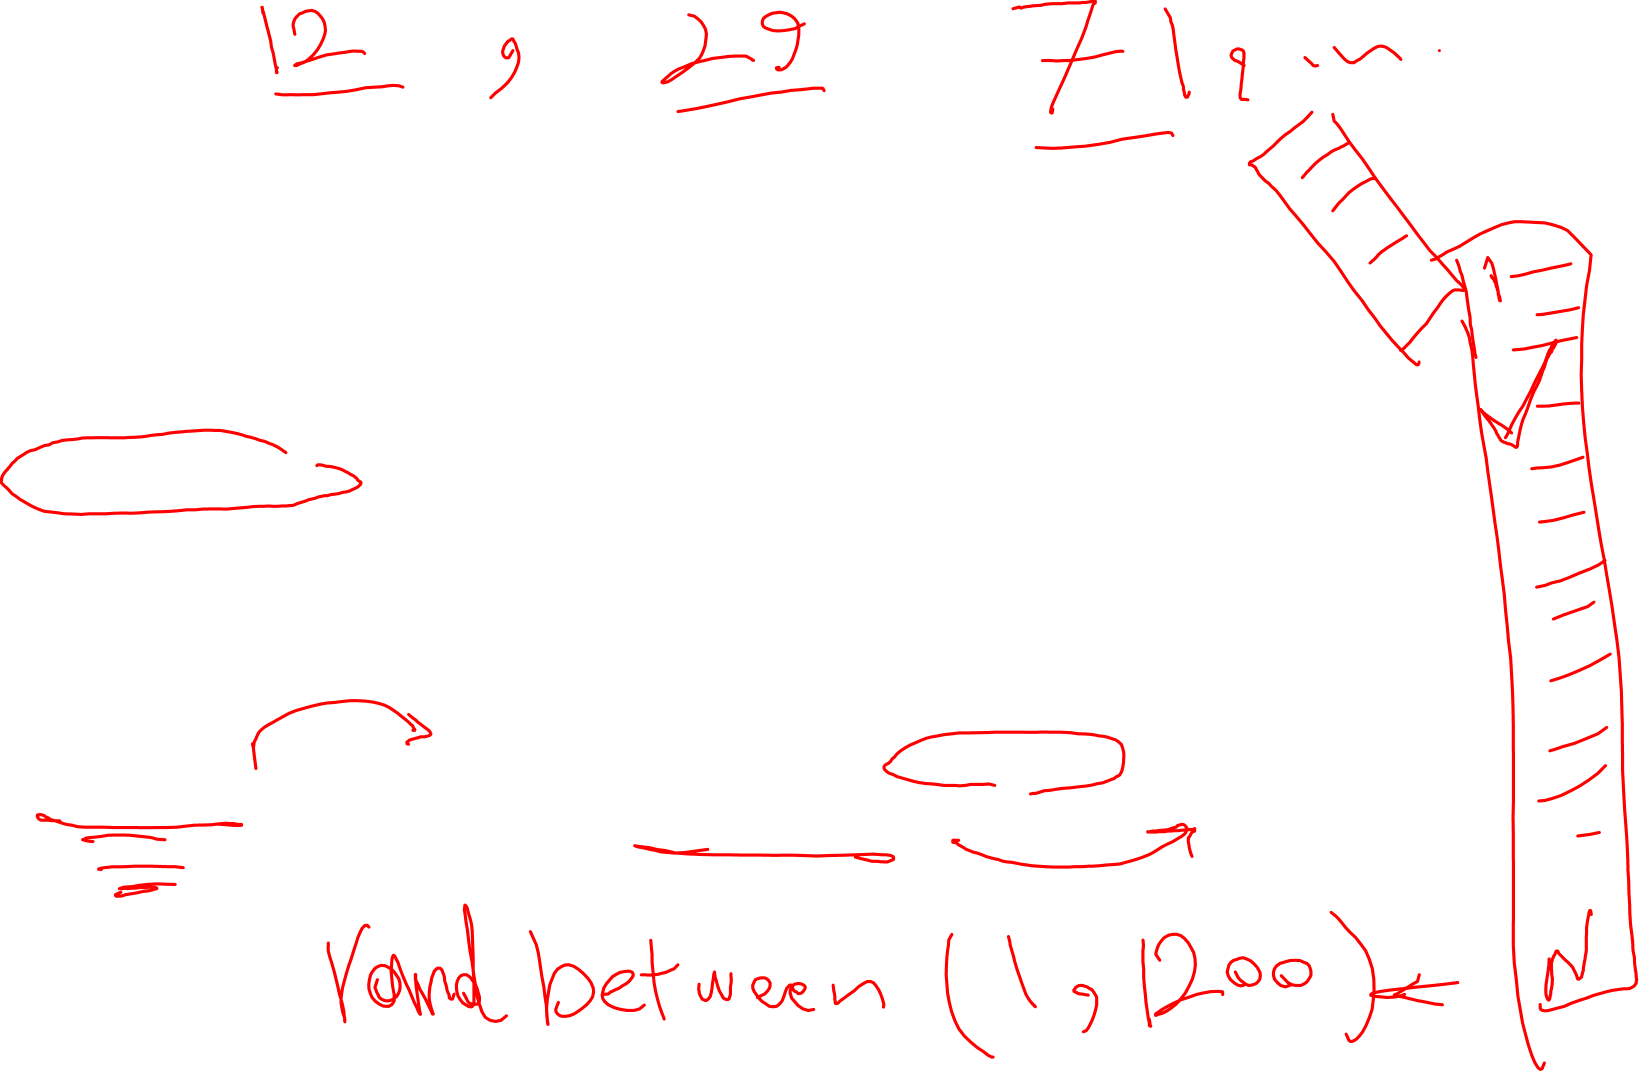 12, 29 71,
1
N
rand between (1, 1200)